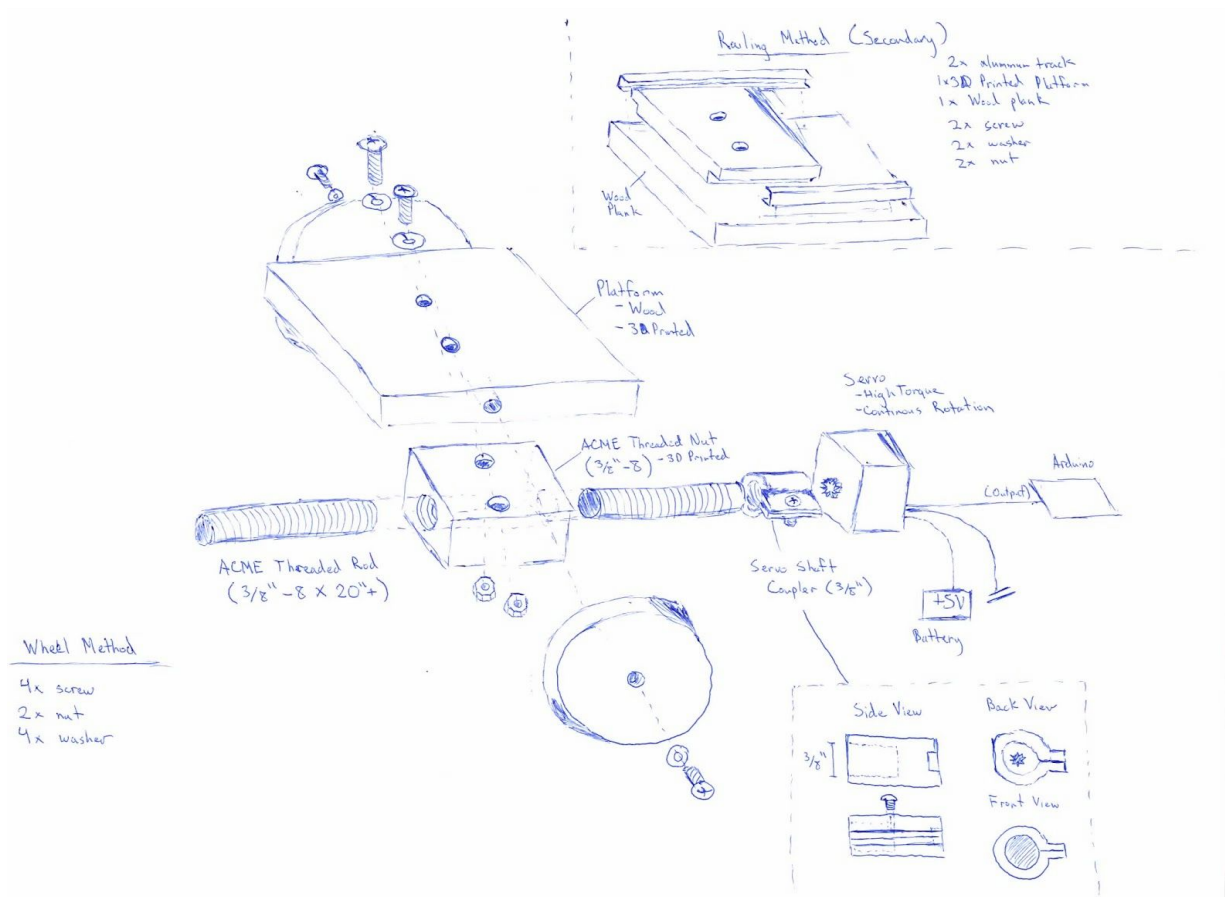 Railing Method (Secondary)
2x aluminum track
1x 3D Printed Platform
1x Wood plank
2x screw
2x washer
2x nut
Wood
Plank
Platform
- Wood
- 3D Printed
Servo
- High Torque
- Continous Rotation
ACME Threaded Nut
(3/8" - 8) - 3D Printed
Arduino
(Output)
ACME Threaded Rod
(3/8" - 8 x 20"+)
Servo Shaft
Coupler (3/8")
+5V
Battery
Wheel Method
4x screw
2x nut
4x washer
Side View
Back View
3/8"
Front View